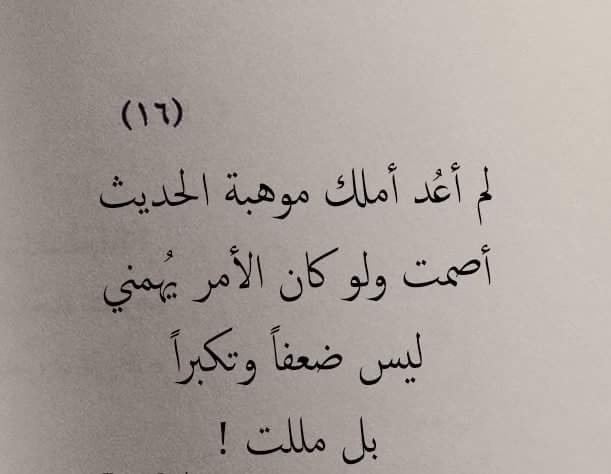 (١٦)
لم أعُد أملك موهبة الحديث
أصمت ولو كان الأمر يُهمني
ليس ضعفاً وتكبراً
بل مللت !